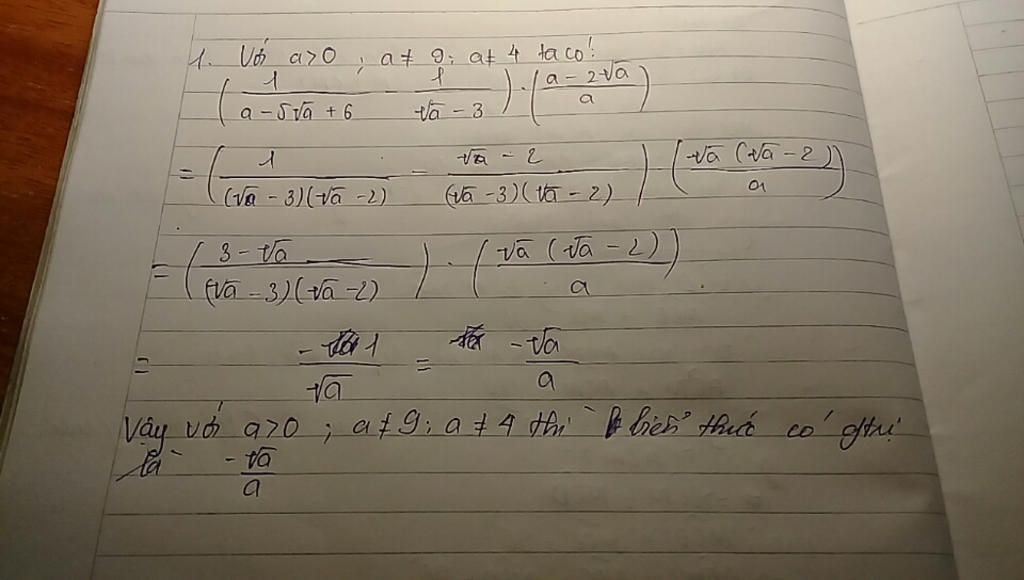 1. Với a>0 ; a≠9; a≠4 ta có:
(1/(a-5√a+6) - 1/(√a-3)) · ((a-2√a)/a)
= (1/((√a-3)(√a-2)) - (√a-2)/((√a-3)(√a-2))) · (√a(√a-2)/a)
= ((3-√a)/((√a-3)(√a-2))) · (√a(√a-2)/a)
= -1/√a = -√a/a
Vậy với a>0 ; a≠9; a≠4 thì biểu thức có gtrị
là -√a/a